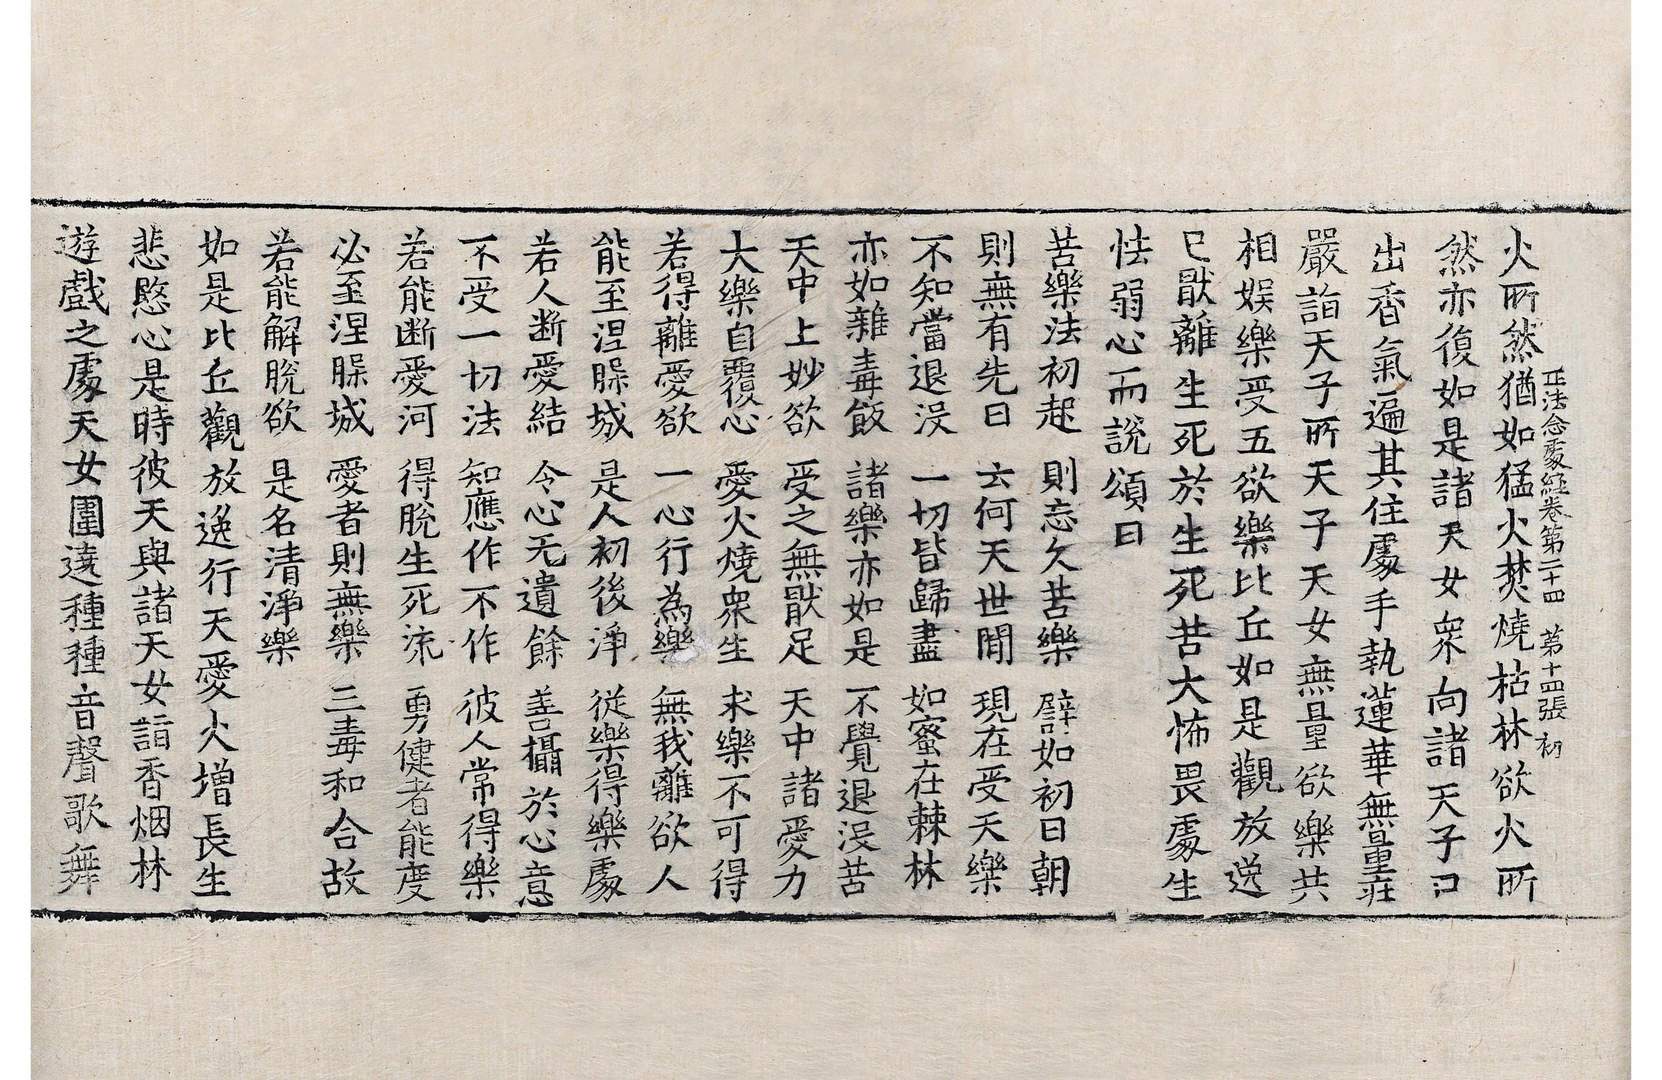 正法念處經卷第二十四 第十四張 初
火所然猶如猛火焚燒枯林欲火所
然亦復如是諸天女衆向諸天子口
出香氣遍其住處手執蓮華無量莊
嚴詣天子所天子天女無量欲樂共
相娛樂受五欲樂比丘如是觀放逸
已猒離生死於生死苦大怖畏處生
怯弱心而說頌曰
苦樂法初起 則忘久苦樂 譬如初日朝
則無有先日 云何天世間 現在受天樂
不知當退没 一切皆歸盡 如蜜在棘林
亦如雜毒飯 諸樂亦如是 不覺退没苦
天中上妙欲 受之無猒足 天中諸愛力
大樂自覆心 愛火燒衆生 求樂不可得
若得離愛欲 一心行為樂 無我離欲人
能至涅槃城 是人初後淨 從樂得樂處
若人断愛結 令心无遺餘 善攝於心意
不受一切法 知應作不作 彼人常得樂
若能断愛河 得脫生死流 勇健者能度
必至涅槃城 愛者則無樂 三毒和合故
若能解脫欲 是名清淨樂
如是比丘觀放逸行天愛火增長生
悲愍心是時彼天與諸天女詣香烟林
遊戲之處天女圍遶種種音聲歌舞